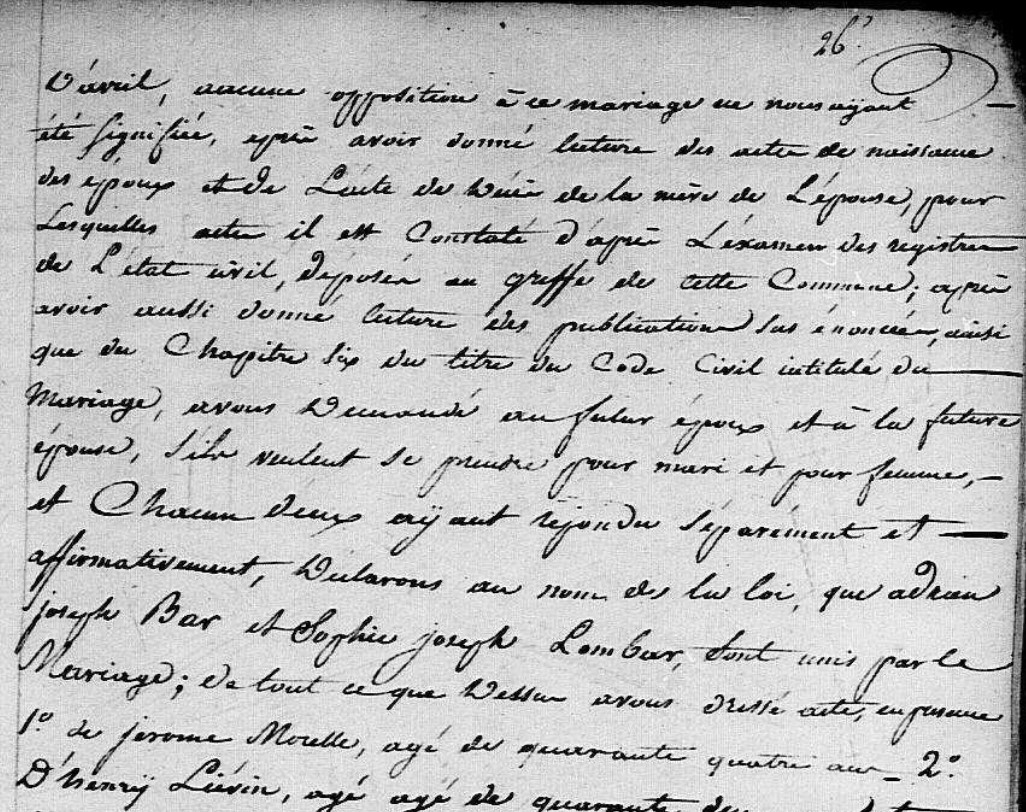 26.
D'avril, aucune opposition à ce mariage ne nous ayant
été signifiée, après avoir donné lecture des actes de naissance
des époux et de L'acte de décès de la mère de L'épouse, pour
Lesquelles actes il est Constaté d'après L'éxamen des registres
de L'état civil, déposés au greffe de cette Commune; après
avoir aussi donné lecture des publications sus énoncées, ainsi
que du Chapitre six du titre du Code Civil intitulé du
Mariage, avons Demandé au futur époux et à la future
épouse, s'ils veulent se prendre pour mari et pour femme,
et Chacun d'eux aÿant répondu Séparément et
affirmativement, Déclarons au nom de la loi, que adrien
joseph Bar et Sophie joseph Lombar, sont unis par le
Mariage; de tout ce que Dessus avons dressé acte, en présence
1.° de jerome Morelle, agé de quarante quatre ans 2.°
D'henrÿ Liévin, agé agé de quarante